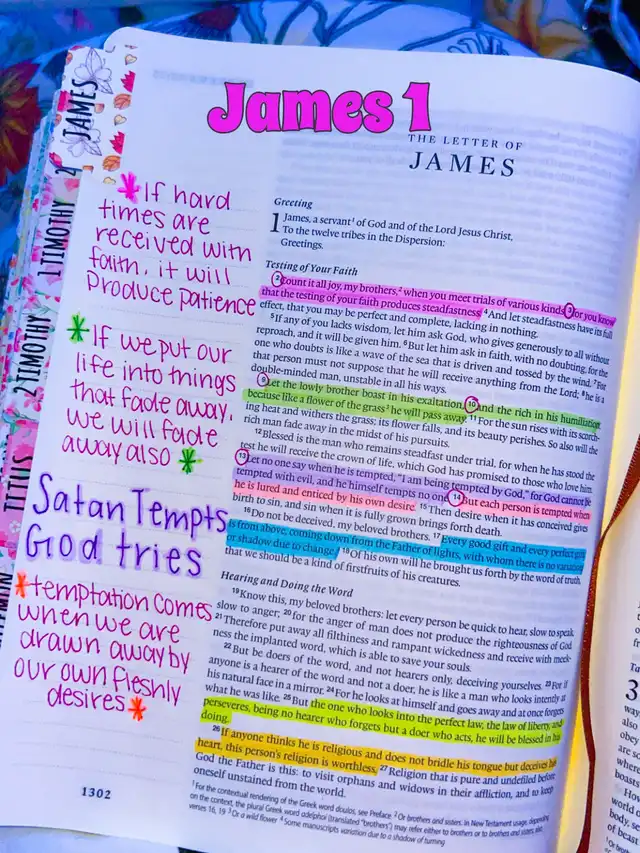 James 1
THE LETTER OF
JAMES
JAMES
1 TIMOTHY 2
2 TIMOTHY
TITUS
*If hard
times are
received with
faith, it will
produce patience
*If we put our
life into things
that fade away,
we will fade
away also *
Satan Tempts
God tries
*temptation comes
when we are
drawn away by
our own fleshly
desires*
1302
Greeting
1 James, a servant¹ of God and of the Lord Jesus Christ,
To the twelve tribes in the Dispersion:
Greetings.
Testing of Your Faith
2 Count it all joy, my brothers,² when you meet trials of various kinds, 3 for you know
that the testing of your faith produces steadfastness. 4 And let steadfastness have its full
effect, that you may be perfect and complete, lacking in nothing.
5 If any of you lacks wisdom, let him ask God, who gives generously to all without
reproach, and it will be given him. 6 But let him ask in faith, with no doubting, for the
one who doubts is like a wave of the sea that is driven and tossed by the wind. 7 For
that person must not suppose that he will receive anything from the Lord; 8 he is a
double-minded man, unstable in all his ways.
9 Let the lowly brother boast in his exaltation, 10 and the rich in his humiliation,
because like a flower of the grass³ he will pass away. 11 For the sun rises with its scorch-
ing heat and withers the grass; its flower falls, and its beauty perishes. So also will the
rich man fade away in the midst of his pursuits.
12 Blessed is the man who remains steadfast under trial, for when he has stood the
test he will receive the crown of life, which God has promised to those who love him.
13 Let no one say when he is tempted, "I am being tempted by God," for God cannot be
tempted with evil, and he himself tempts no one. 14 But each person is tempted when
he is lured and enticed by his own desire. 15 Then desire when it has conceived gives
birth to sin, and sin when it is fully grown brings forth death.
16 Do not be deceived, my beloved brothers. 17 Every good gift and every perfect gift
is from above, coming down from the Father of lights, with whom there is no variation
or shadow due to change.⁴ 18 Of his own will he brought us forth by the word of truth,
that we should be a kind of firstfruits of his creatures.
Hearing and Doing the Word
19 Know this, my beloved brothers: let every person be quick to hear, slow to speak,
slow to anger; 20 for the anger of man does not produce the righteousness of God.
21 Therefore put away all filthiness and rampant wickedness and receive with meek-
ness the implanted word, which is able to save your souls.
22 But be doers of the word, and not hearers only, deceiving yourselves. 23 For if
anyone is a hearer of the word and not a doer, he is like a man who looks intently at
his natural face in a mirror. 24 For he looks at himself and goes away and at once forgets
what he was like. 25 But the one who looks into the perfect law, the law of liberty, and
perseveres, being no hearer who forgets but a doer who acts, he will be blessed in his
doing.
26 If anyone thinks he is religious and does not bridle his tongue but deceives his
heart, this person's religion is worthless. 27 Religion that is pure and undefiled before
God the Father is this: to visit orphans and widows in their affliction, and to keep
oneself unstained from the world.
1 For the contextual rendering of the Greek word doulos, see Preface 2 Or brothers and sisters. In New Testament usage, depending
on the context, the plural Greek word adelphoi (translated "brothers") may refer either to brothers or to brothers and sisters; also
verses 16, 19 3 Or a wild flower 4 Some manuscripts variation due to a shadow of turning